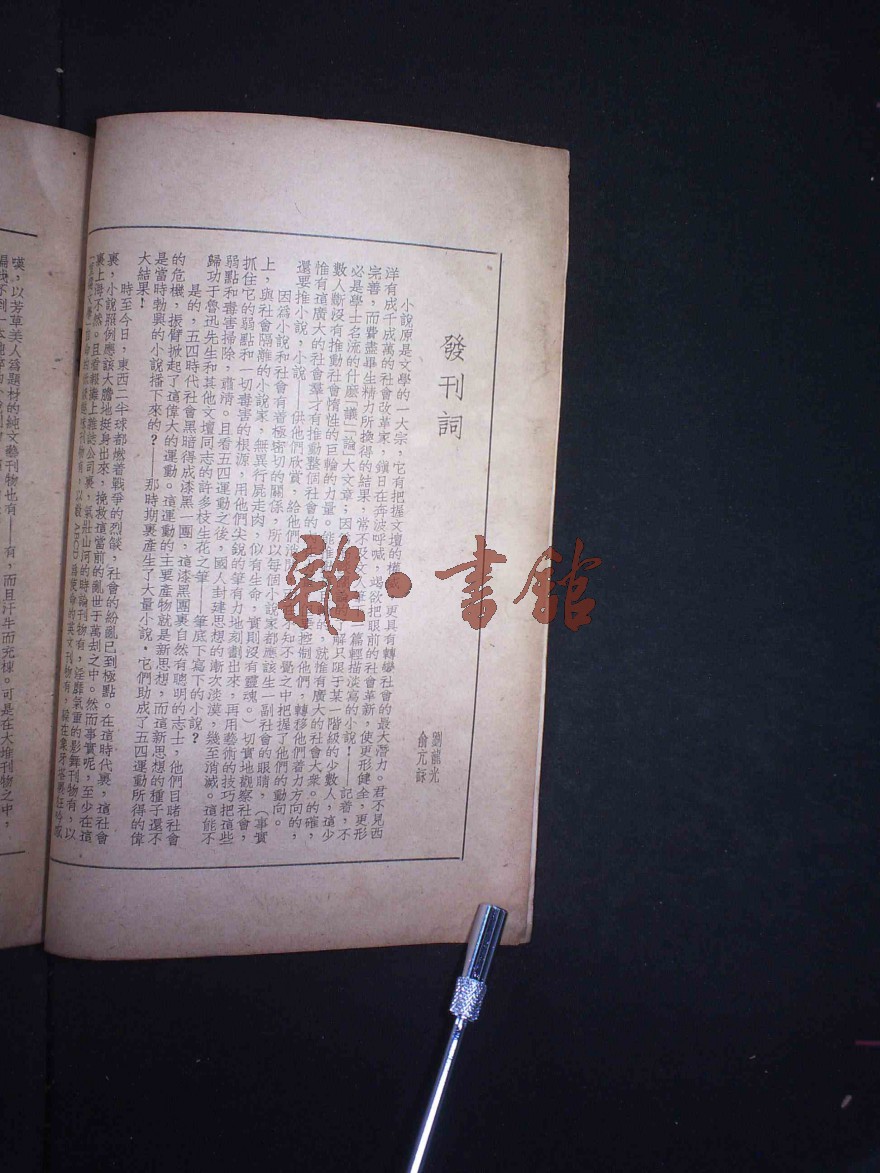 發刊詞
劉龍光
俞亢詠
小說原是文學的一大宗，它有把握文壇的更具有轉變社會的最大潛力。君不見西
洋有成千成萬的社會改革家，鎮日在奔波呼喊，竭欲把眼前的社會革新，使更形健全，更形
完善，而費盡畢生精力所換得的結果，常不及一篇輕描淡寫的小說！——記着，不
必是學士名流的什麼「議」「論」大文章；因解只限于某一階級的少數人，這少
數人斷沒有推動社會惰性的巨輪的力量。的，就惟有廣大的社會大衆。的確，
惟有這廣大的社會羣才有推動整個社會的把他們，轉移他們着力方向的，
還要推小說，小說——供他們欣賞，給他們不知不覺之中把握了他們的動向。
因為小說和社會有着極密切的關係，所以每個小說家都應該生一副社會的眼睛，（事實
上，與社會隔離的小說家，無異行屍走肉，似有生命，實則沒有靈魂。）切實地觀察社會，
抓住它的弱點和一切毒害的根源，用他們尖銳的筆有力地刻劃出來，再用藝術的技巧把這些
弱點和毒害掃除，肅清。且看五四運動之後，國人封建思想的漸次淡漠，幾至消滅。這能不
歸功于魯迅先生和其他文壇同志的許多枝生花之筆——筆底下寫下的小說？
是的，五四時代社會黑暗得成漆黑一團，這漆黑團裏自然有聰明的志士，他們目睹社會
的危機，振臂掀起了這偉大的運動。這運動的主要產物就是新思想，而這新思想的種子還不
是當時勃興的小說播下來的？——那時期裏產生了大量小說，它們助成了五四運動所得的偉
大結果！
時至今日，東西二半球都燃着戰爭的烈燄，社會的紛亂已到極點。在這時代裏，這社會
裏，小說照例應該大膽地挺身出來，挽救這當前的亂世于萬劫之中。然而事實呢，至少在這
裏上海不然。且看報攤上雜誌公司裏，氣壯山河的時論刊物有，淫靡氣重的影舞刊物有，以
爲使命的英文刊物有，躱在象牙塔裏狂吟或
嘆，以芳草美人為題材的純文藝刊物也有——有，而且汗牛而充棟。可是在大堆刊物之中，
雜·書館